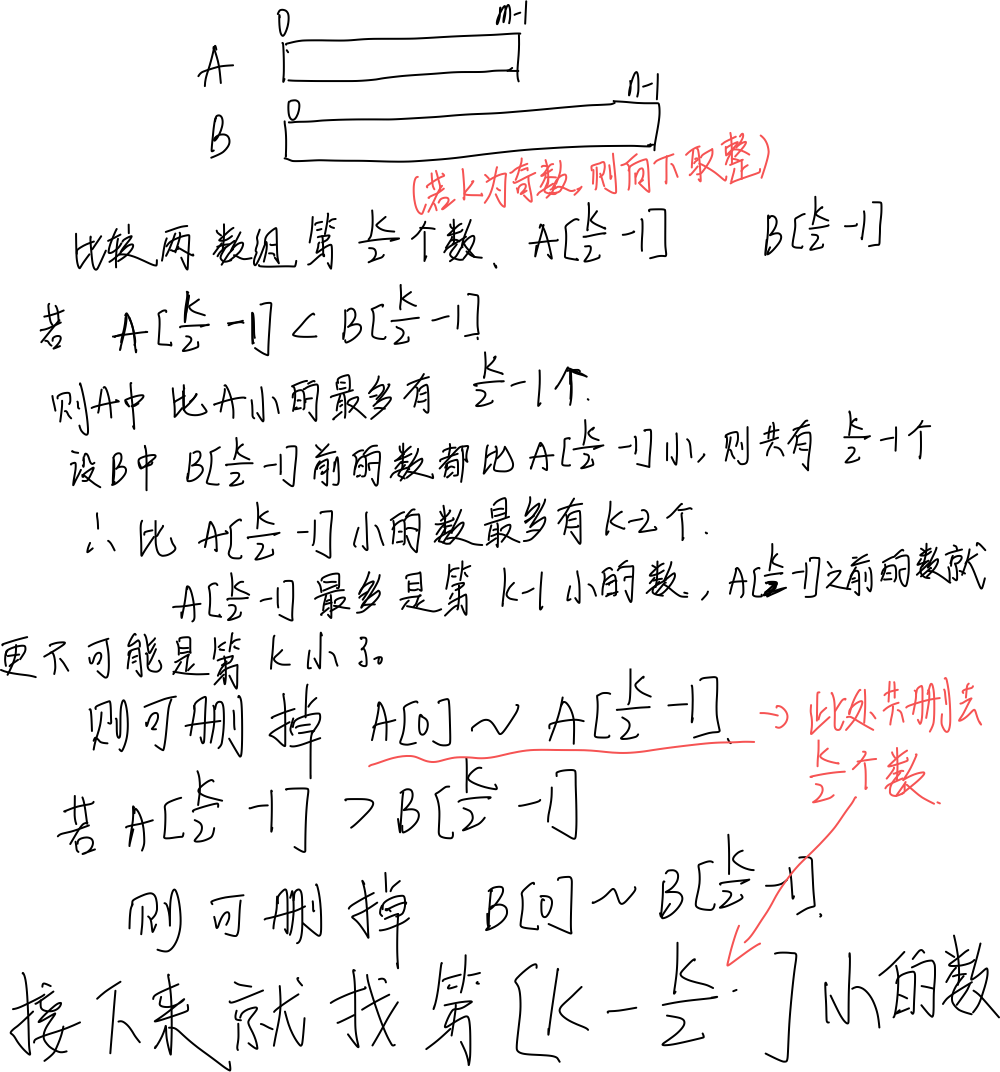 0 m-1
A
0 n-1
B
(若k为奇数,则向下取整)
比较两数组第 k/2 个数、A[k/2 -1] B[k/2 -1]
若 A[k/2 -1] < B[k/2 -1]
则A中 比A小的最多有 k/2 -1个.
设B中 B[k/2 -1]前的数都比 A[k/2 -1]小, 则共有 k/2 -1个
∴ 比 A[k/2 -1] 小的数最多有 k-2个.
A[k/2 -1] 最多是第 k-1 小的数, A[k/2 -1]之前的数就
更不可能是第 k 小了。
则可删掉 A[0] ~ A[k/2 -1]. → 此处共删去
k/2 个数.
若 A[k/2 -1] > B[k/2 -1]
则可删掉 B[0] ~ B[k/2 -1].
接下来就找第 [k - k/2] 小的数